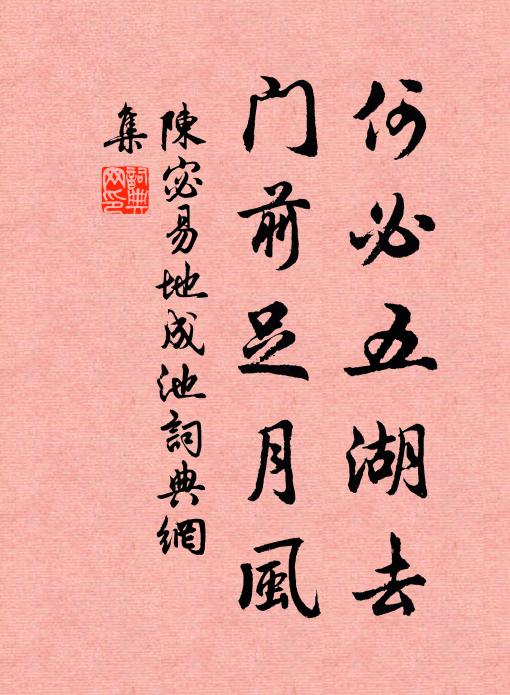 何必五湖去
门前足月風
陳宓易地成池詞典網
集
詞典
网印